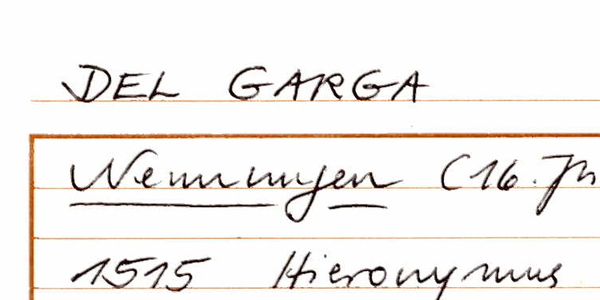 DEL GARGA
Nenningen (16. Jh
1515 Hieronymus